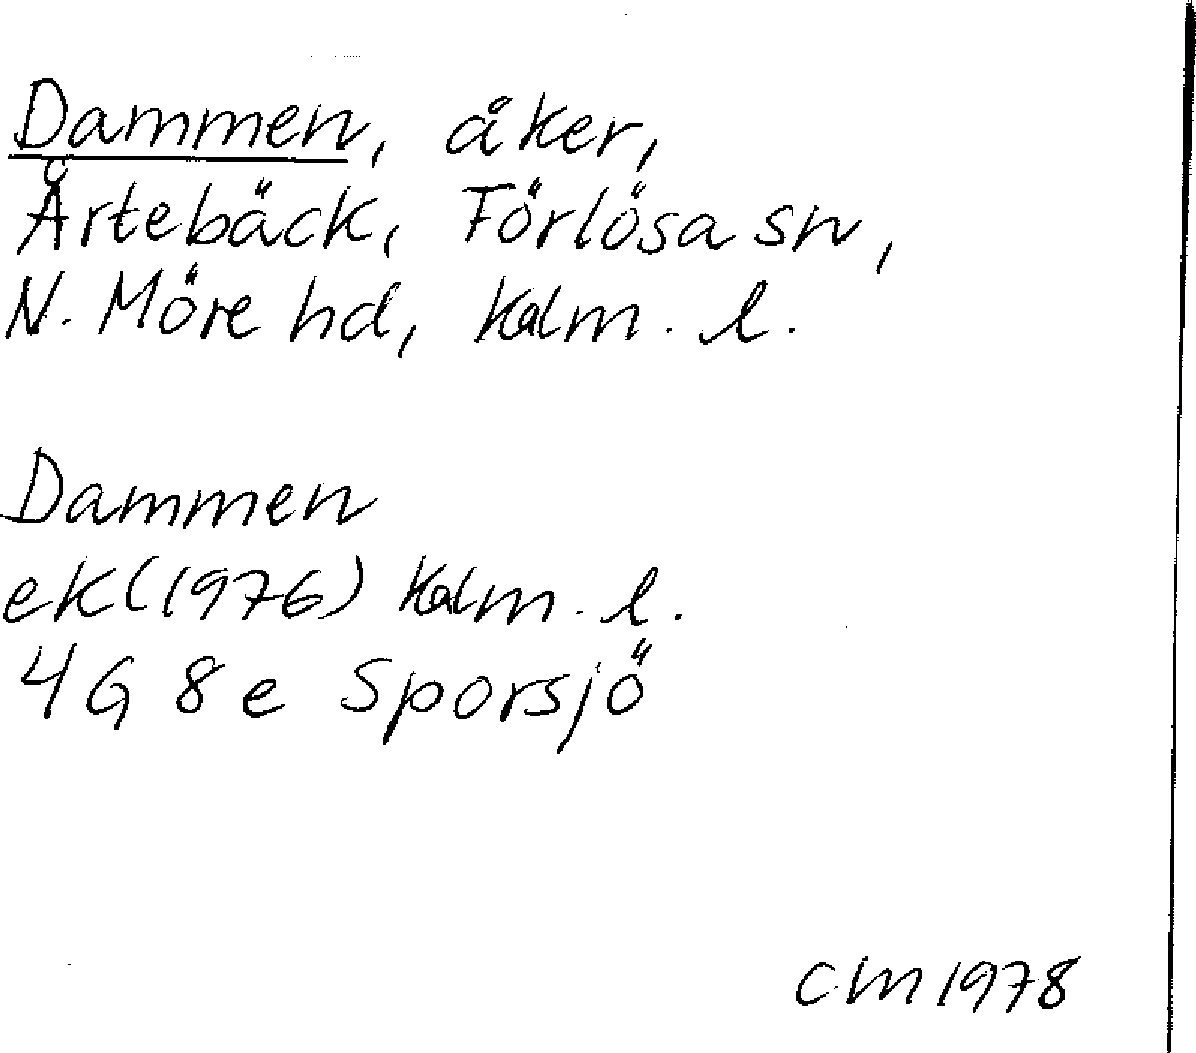 Dammen, åker,
Årtebäck, Förlösa sn,
N. Möre hd, Kalm. l.
Dammen
ek (1976) Kalm. l.
4G 8e Sporsjö
CM 1978